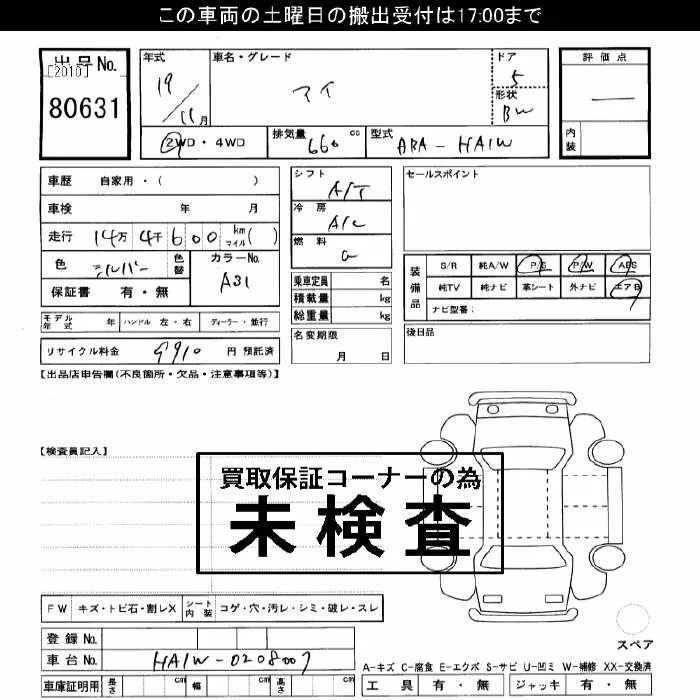 この車両の土曜日の搬出受付は17:00まで
出品No.
[2010]
80631
年式
19/11月
車名・グレード
アイ
ドア
5
形状
BW
評価点
―
内装
②WD・4WD
排気量
660 cc
型式
ABA-HA1W
車歴 自家用・( )
車検 年 月
走行 14万 4千 600 km マイル( )
色 シルバー
色替
カラーNo.
A31
保証書 有・無
シフト
A/T
冷房
A/C
燃料
G
乗車定員 名
積載量 kg
総重量 kg
名変期限
月 日
セールスポイント
装備品
S/R 純A/W P/S P/W ABS
純TV 純ナビ 革シート 外ナビ エアB
ナビ型番:
後日品
モデル年式 年 ハンドル 左・右 ディーラー・並行
リサイクル料金 9910 円 預託済
【出品店申告欄(不良箇所・欠品・注意事項等)】
【検査員記入】
買取保証コーナーの為
未検査
FW キズ・トビ石・割レX シート内装 コゲ・穴・汚レ・シミ・破レ・スレ
登録No.
車台No. HA1W-0208007
車庫証明用 長さ cm 幅 cm 高さ cm
スペア
A-キズ C-腐食 E-エクボ S-サビ U-凹ミ W-補修 XX-交換済
工具 有・無 ジャッキ 有・無